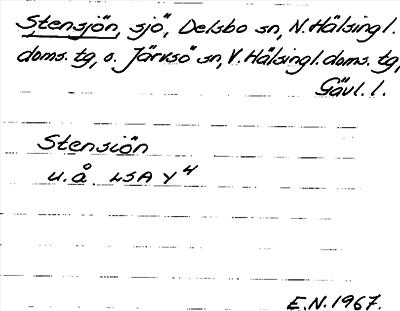 Stensjön, sjö, Delsbo sn, N. Hälsingl.
doms. tg, o. Järvsö sn, V. Hälsingl. doms. tg,
Gävl. l.
Stensiön
u.å LSA Y 4
E.N. 1967.